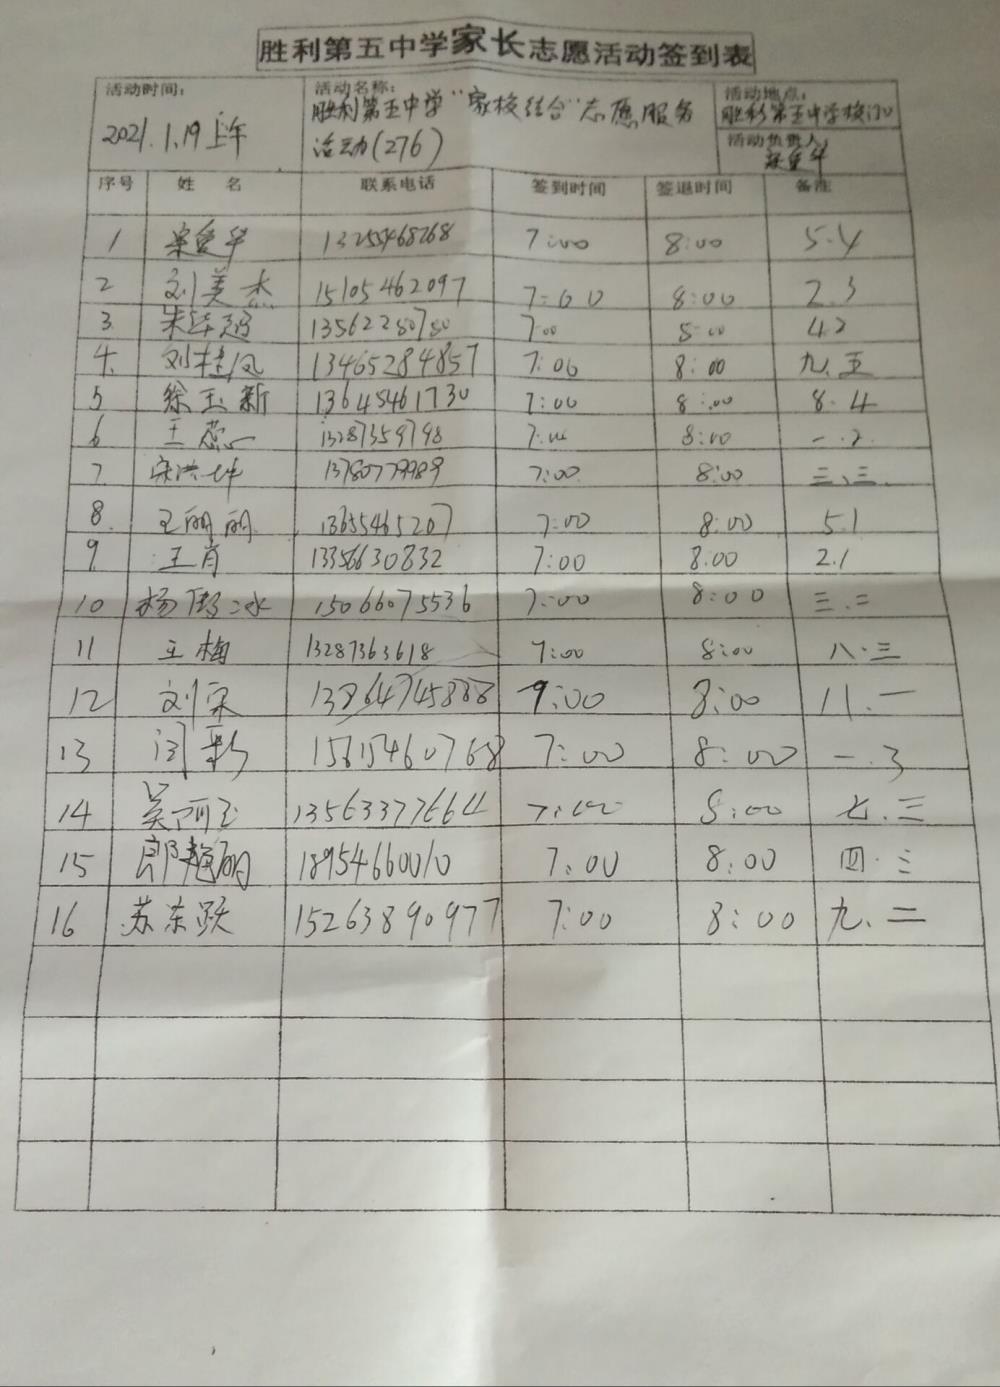 胜利第五中学家长志愿活动签到表
活动时间：
2021.1.19上午
活动名称：
胜利第五中学“家校结合”志愿服务
活动(276)
活动地点：
胜利第五中学校门口
活动负责人：
序号 姓 名 联系电话 签到时间 签退时间 备注
1 13255468268 7:00 8:00 5.4
2 刘美杰 15105462097 7:00 8:00 2.3
3. 13562280780 7:00 8:00 4.2
4. 刘桂凤 13465284857 7:00 8:00 九.五
5 徐玉新 13645461730 7:00 8:00 8.4
6 王蕊 13287359798 7:00 8:00 一.2.
7. 宋洪坤 13780779989 7:00 8:00 三、三.
8. 王丽丽 13655465207 7:00 8:00 5.1
9. 王肖 13356630832 7:00 8.00 2.1
10 杨 冰 15066075536 7:00 8:00 三.二
11 王梅 13287363618 7:00 8:00 八.三
12 刘荣 13864745888 9:00 8:00 八.一
13 闫彩 15615460768 7:00 8:00 一.3
14 吴丽玉 13563377664 7:00 8:00 七.三
15 郎艳丽 18954660010 7:00 8:00 四.三
16 苏东跃 15263890977 7:00 8:00 九.二